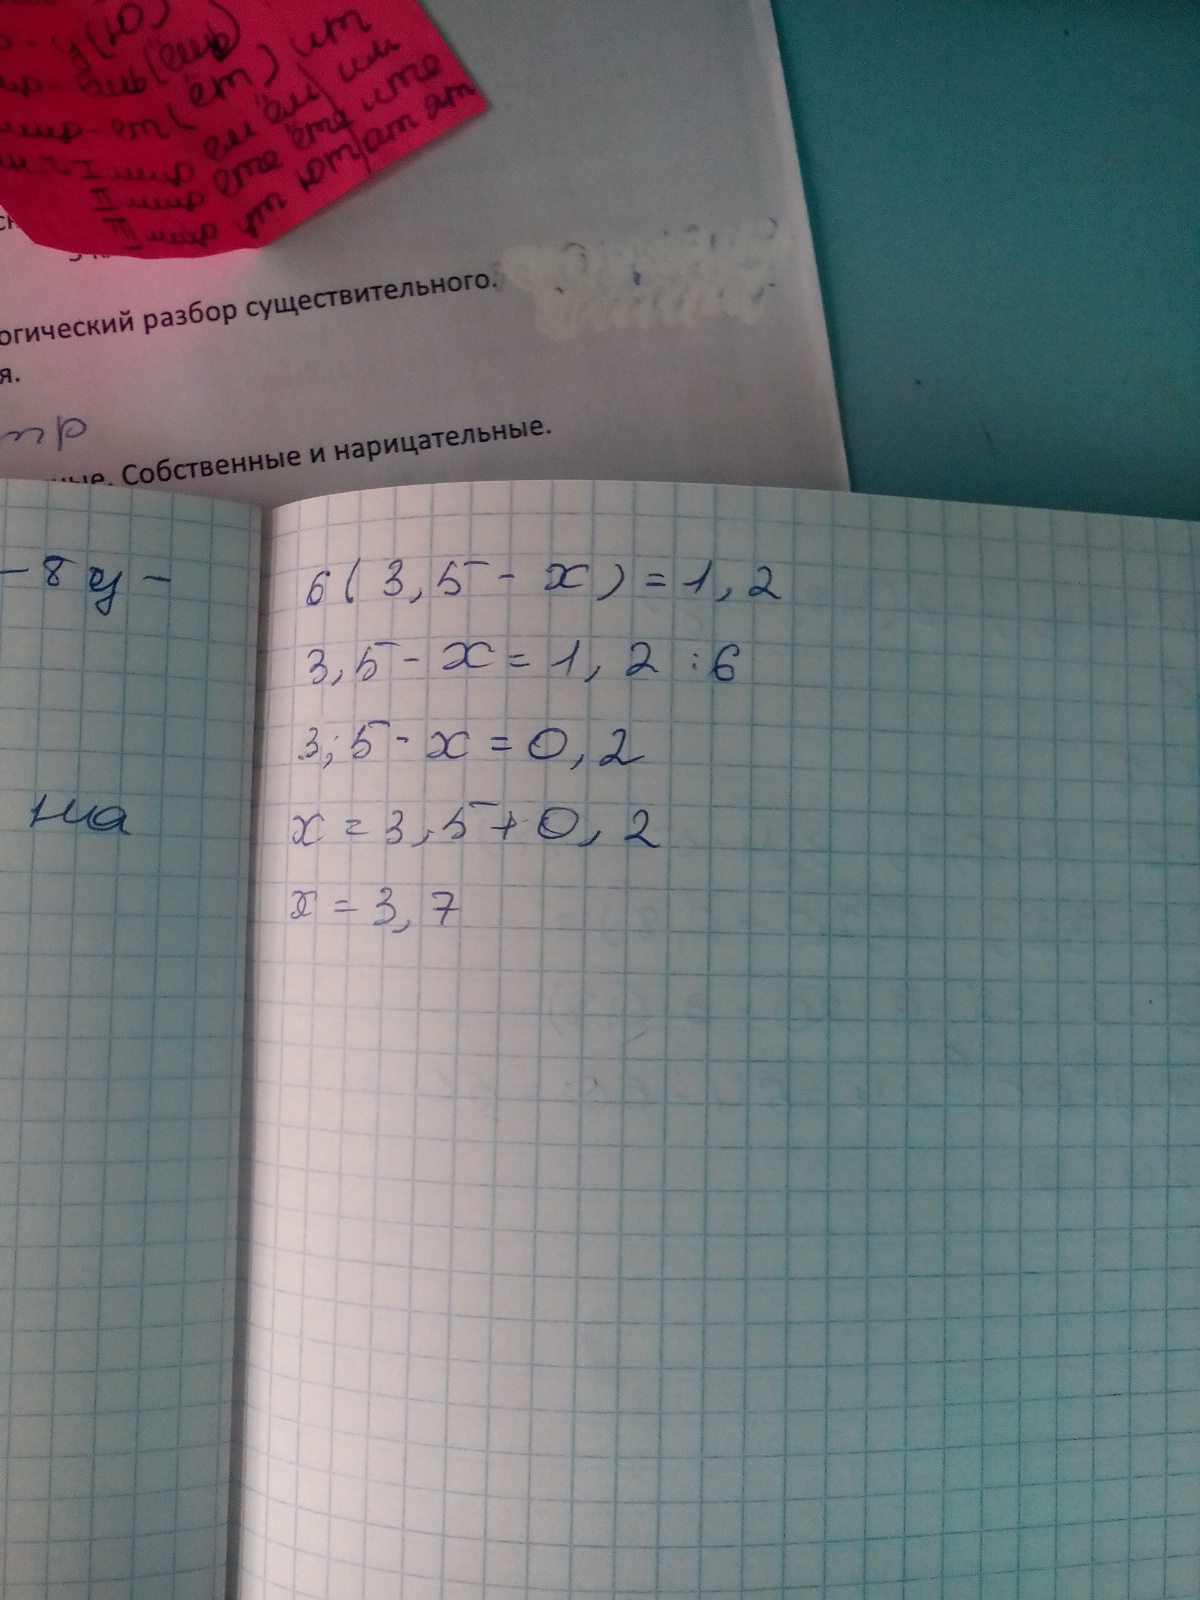 у(ю)
ешь(ёшь)
ет(ёт) ит
I лицо ем ём им
II лицо ете ёте ите
III лицо ут ют ат ят
огический разбор существительного.
я.
пр
ные. Собственные и нарицательные.
- 8 у -
на
6(3,5 - x) = 1,2
3,5 - x = 1,2 : 6
3,5 - x = 0,2
x = 3,5 + 0,2
x = 3,7